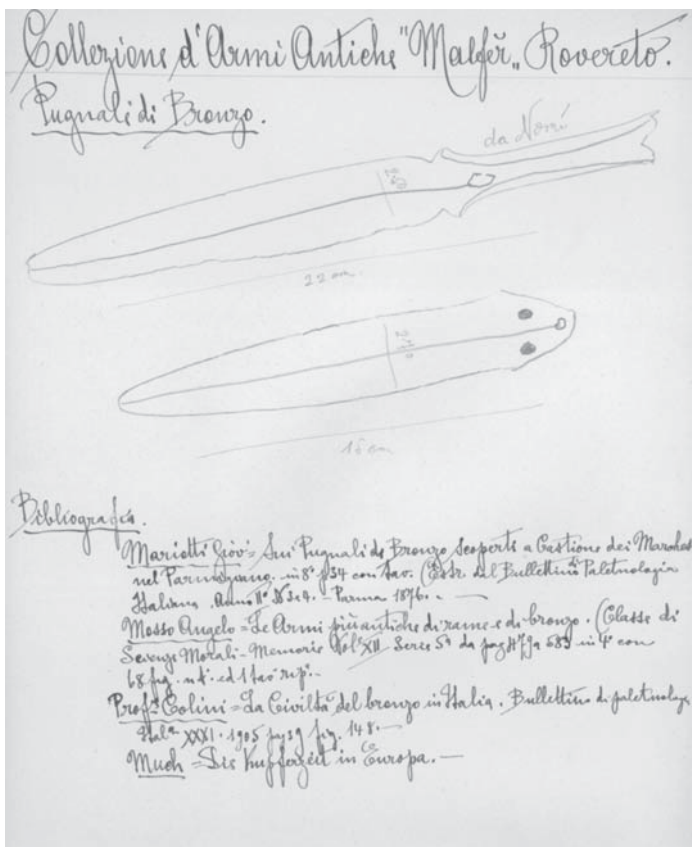 Collezione d'Armi Antiche "Malfèr„ Rovereto.
Pugnali di Bronzo.
da Nomi
22 cm
15 cm
Bibliografia.
Mariotti Giov: = Sui Pugnali di Bronzo scoperti a Castione dei Marchesi
nel Parmigiano. in 8° p34 con tav. (Estr. dal Bullettino Paletnologia
Italiana. Anno II° N 3 e 4. - Parma 1876. -
Mosso Angelo = Le Armi più antiche di rame e di bronzo. (Classe di
Scienze Morali - Memorie Vol° XII Serie 5ª da pag 479 a 583 in 4° con
68 fig. n t. ed 1 tav rip. -
Prof: Colini = La Civiltà del bronzo in Italia. Bullettino di paletnologia
Italª XXXI. 1905 pag 9 fig. 148. -
Much = Die Kupferzeit in Europa. -